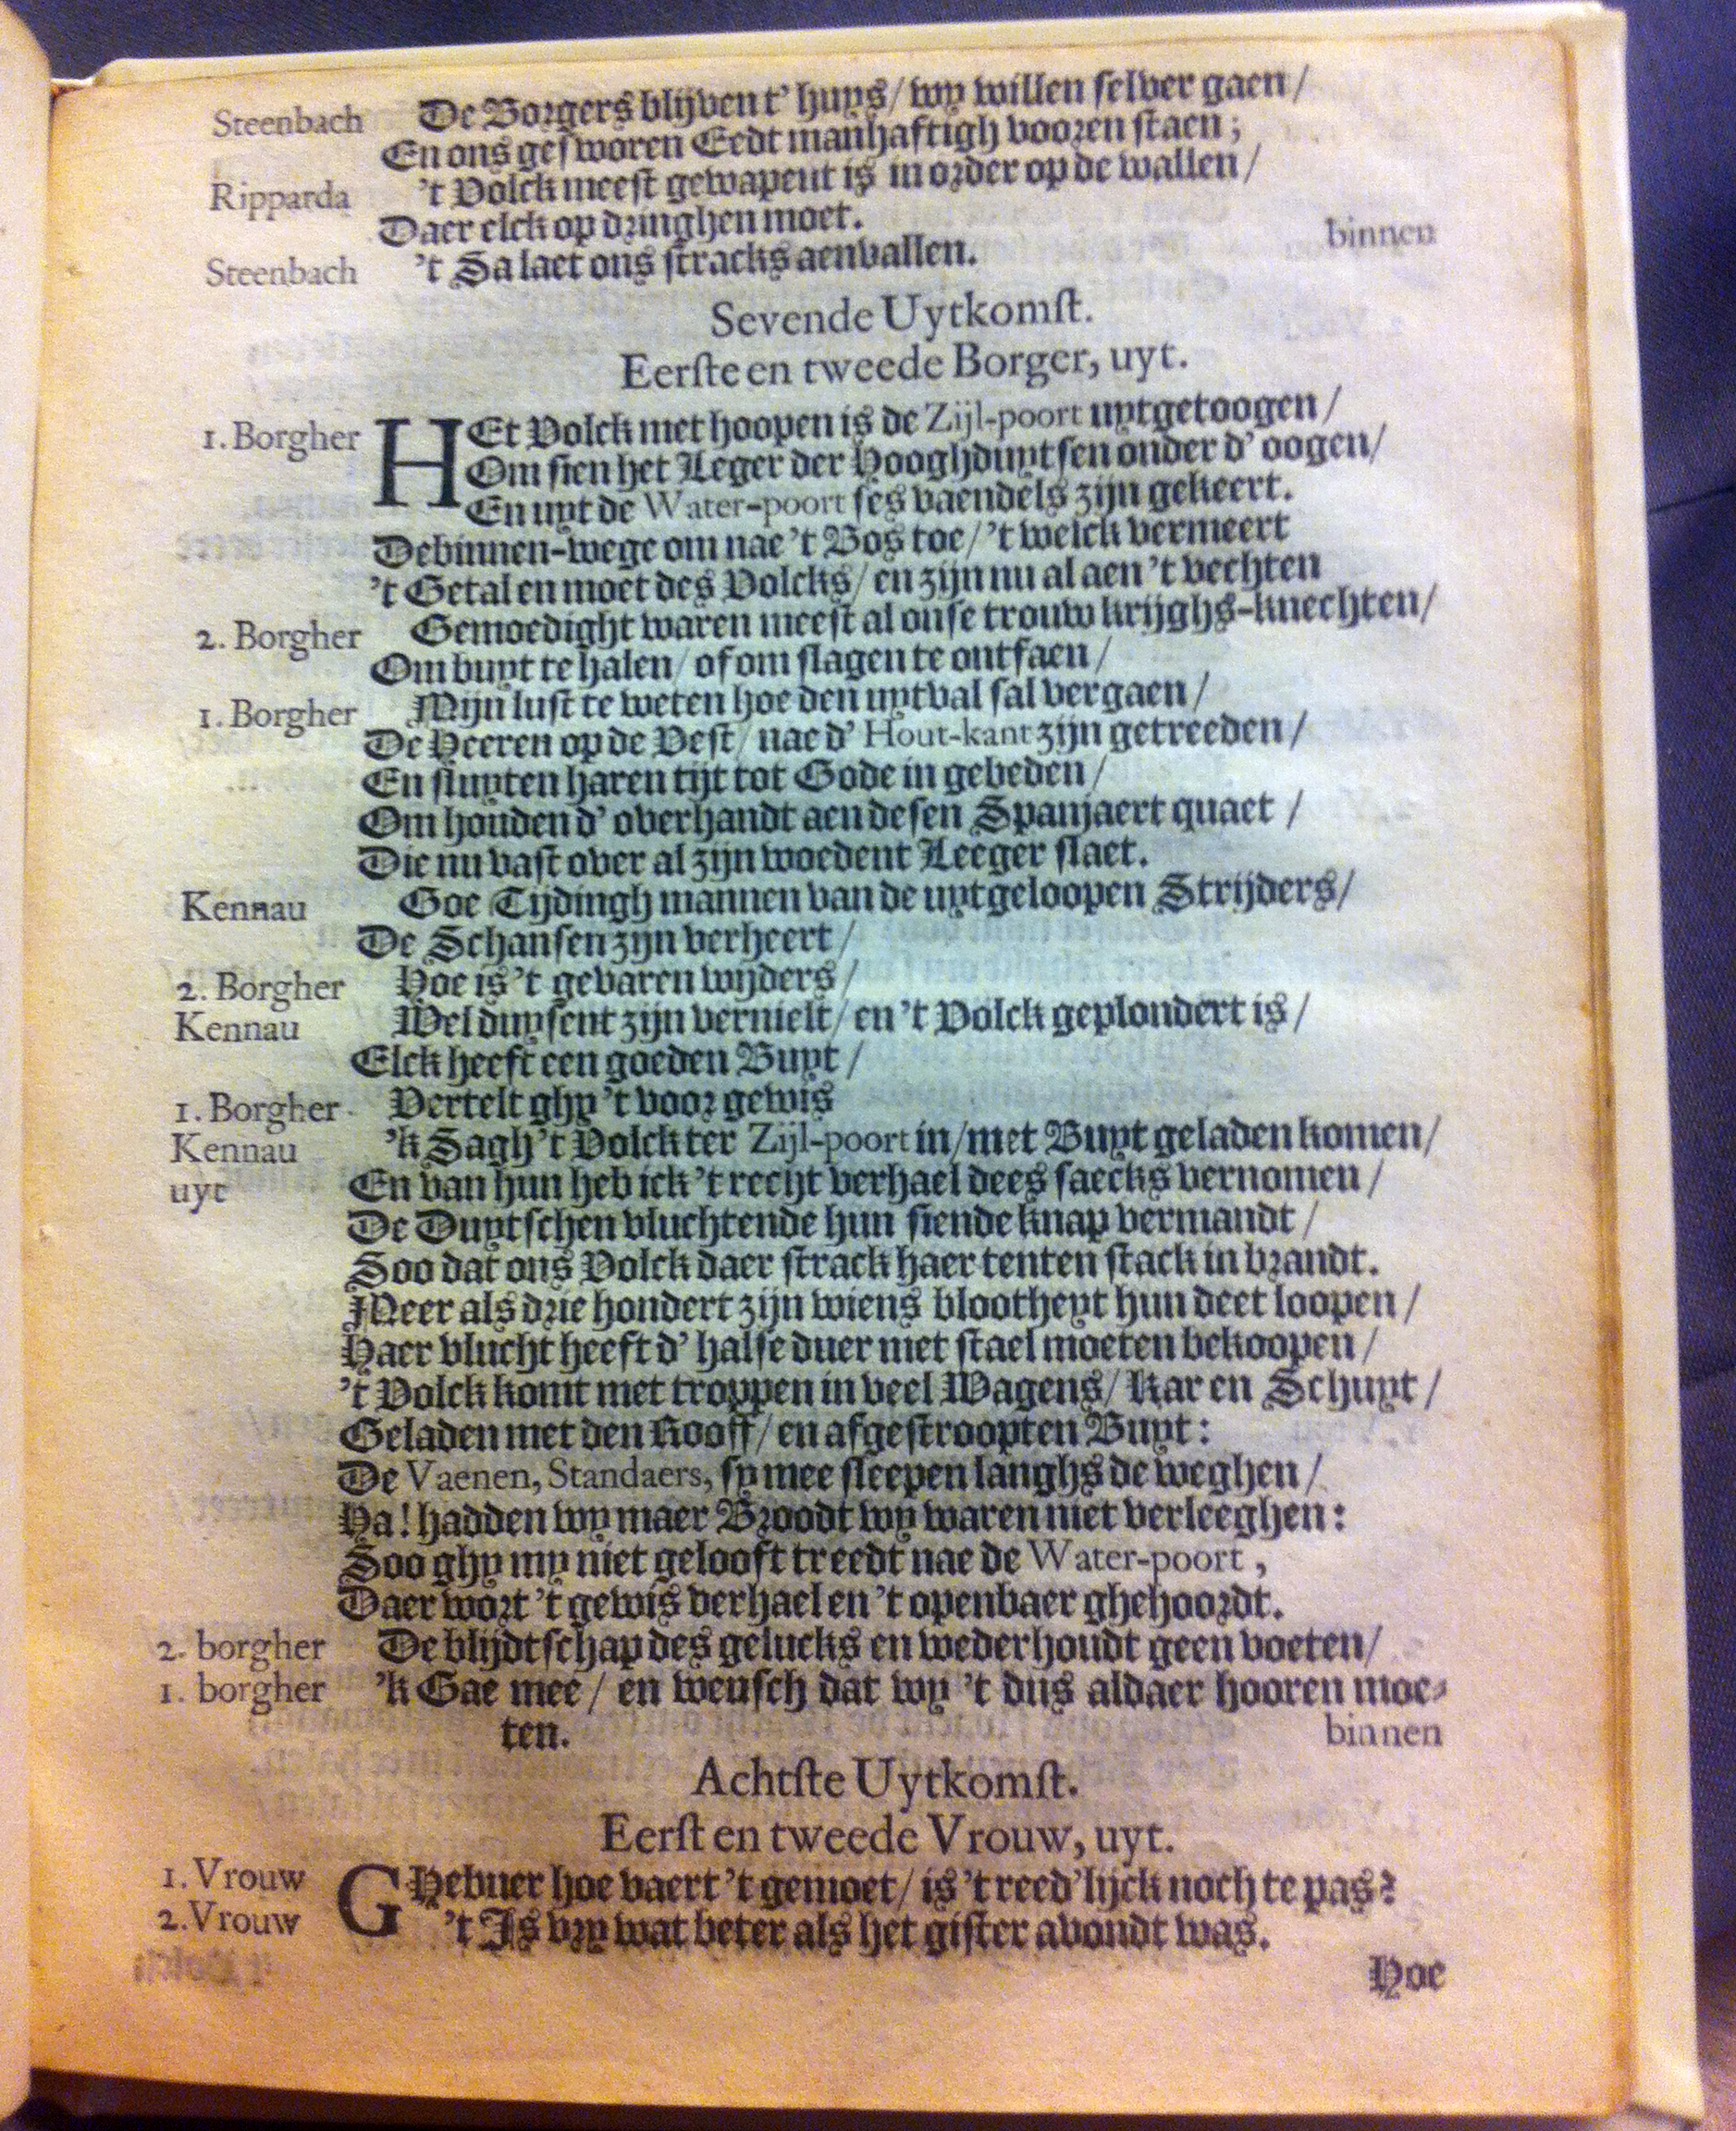 Steenbach De Borgers blijven t' huys/ wy willen selver gaen/
En ons gesworen Eedt manhaftigh vooren staen;
Ripparda 't Volck meest gewapent is in order op de wallen/
Daer elck op dringhen moet.
binnen
Steenbach 't Sa laet ons stracks aenvallen.
Sevende Uytkomst.
Eerste en tweede Borger, uyt.
1. Borgher HEt Volck met hoopen is de Zijl-poort uytgetoogen/
Om sien het Leger der Hooghduytsen onder d' oogen/
En uyt de Water-poort ses vaendels zijn gekeert.
De binnen-wege om nae 't Bos toe/ 't welck vermeert
't Getal en moet des Volcks/ en zijn nu al aen 't vechten
2. Borgher Gemoedight waren meest al onse trouw krijghs-knechten/
Om buyt te halen/ of om slagen te ontfaen/
1. Borgher Mijn lust te weten hoe den uytval sal vergaen/
De Heeren op de Vest/ nae d' Hout-kant zijn getreeden/
En sluyten haren tijt tot Gode in gebeden/
Om houden d' overhandt aen desen Spanjaert quaet/
Die nu vast over al zijn woedent Leeger slaet.
Kennau Goe Tijdingh mannen van de uytgeloopen Strijders/
De Schansen zijn verheert/
2. Borgher Hoe is 't gevaren wijders/
Kennau Wel duysent zijn vernielt/ en 't Volck geplondert is/
Elck heeft een goeden Buyt/
1. Borgher Vertelt ghy 't voor gewis
Kennau 'k Sagh 't Volck ter Zijl-poort in/ met Buyt geladen komen/
uyt En van hun heb ick 't recht verhael dees saecks vernomen/
De Duytschen vluchtende hun siende knap vermandt/
Soo dat ons Volck daer strack haer tenten stack in brandt.
Meer als drie hondert zijn wiens blootheyt hun deet loopen/
Haer vlucht heeft d' halse duer met stael moeten bekoopen/
't Volck komt met troppen in veel Wagens/ Kar en Schuyt/
Geladen met den Rooff/ en afgestroopten Buyt:
De Vaenen, Standaers, sy mee sleepen langhs de weghen/
Ha! hadden wy maer Broodt wy waren niet verleeghen:
Soo ghy my niet gelooft treedt nae de Water-poort,
Daer wort 't gewis verhael en 't openbaer ghehoordt.
2. borgher De blijdtschap des gelucks en wederhoudt geen voeten/
1. borgher 'k Gae mee/ en wensch dat wy 't dus aldaer hooren moe-
ten. binnen
Achtste Uytkomst.
Eerst en tweede Vrouw, uyt.
1. Vrouw GHebuer hoe vaert 't gemoet/ is 't reed'lijck noch te pas?
2. Vrouw 't Is vry wat beter als het gister avondt was.
Hoe